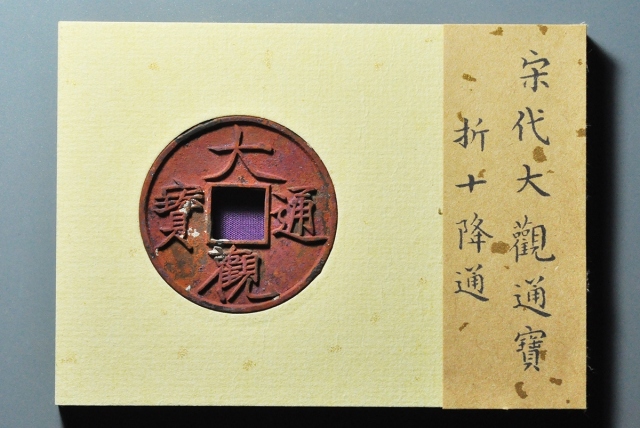 宋代大觀通寶
折十降通
大觀通寶